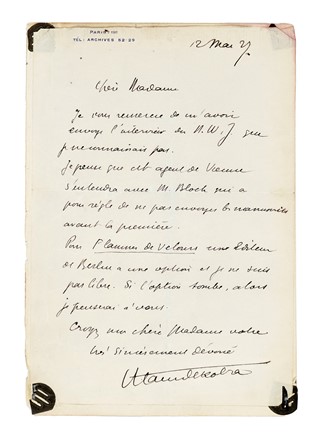 PARIS
TÉL: ARCHIVES 52-29
12 Mai 27
Chère Madame
Je vous remercie de m'avoir
envoyé l'interview du N.W.J que
je ne connaissais pas.
Je pense que cet agent de Vienne
s'entendra avec M. Bloch qui a
pour règle de ne pas envoyer les manuscrits
avant la première.
Pour Flammes de Velours une éditeur
de Berlin a une option et je ne suis
pas libre. Si l'option tombe, alors
je penserai à vous.
Croyez ma chère Madame votre
très sincèrement dévoué
Maurice Dekobra